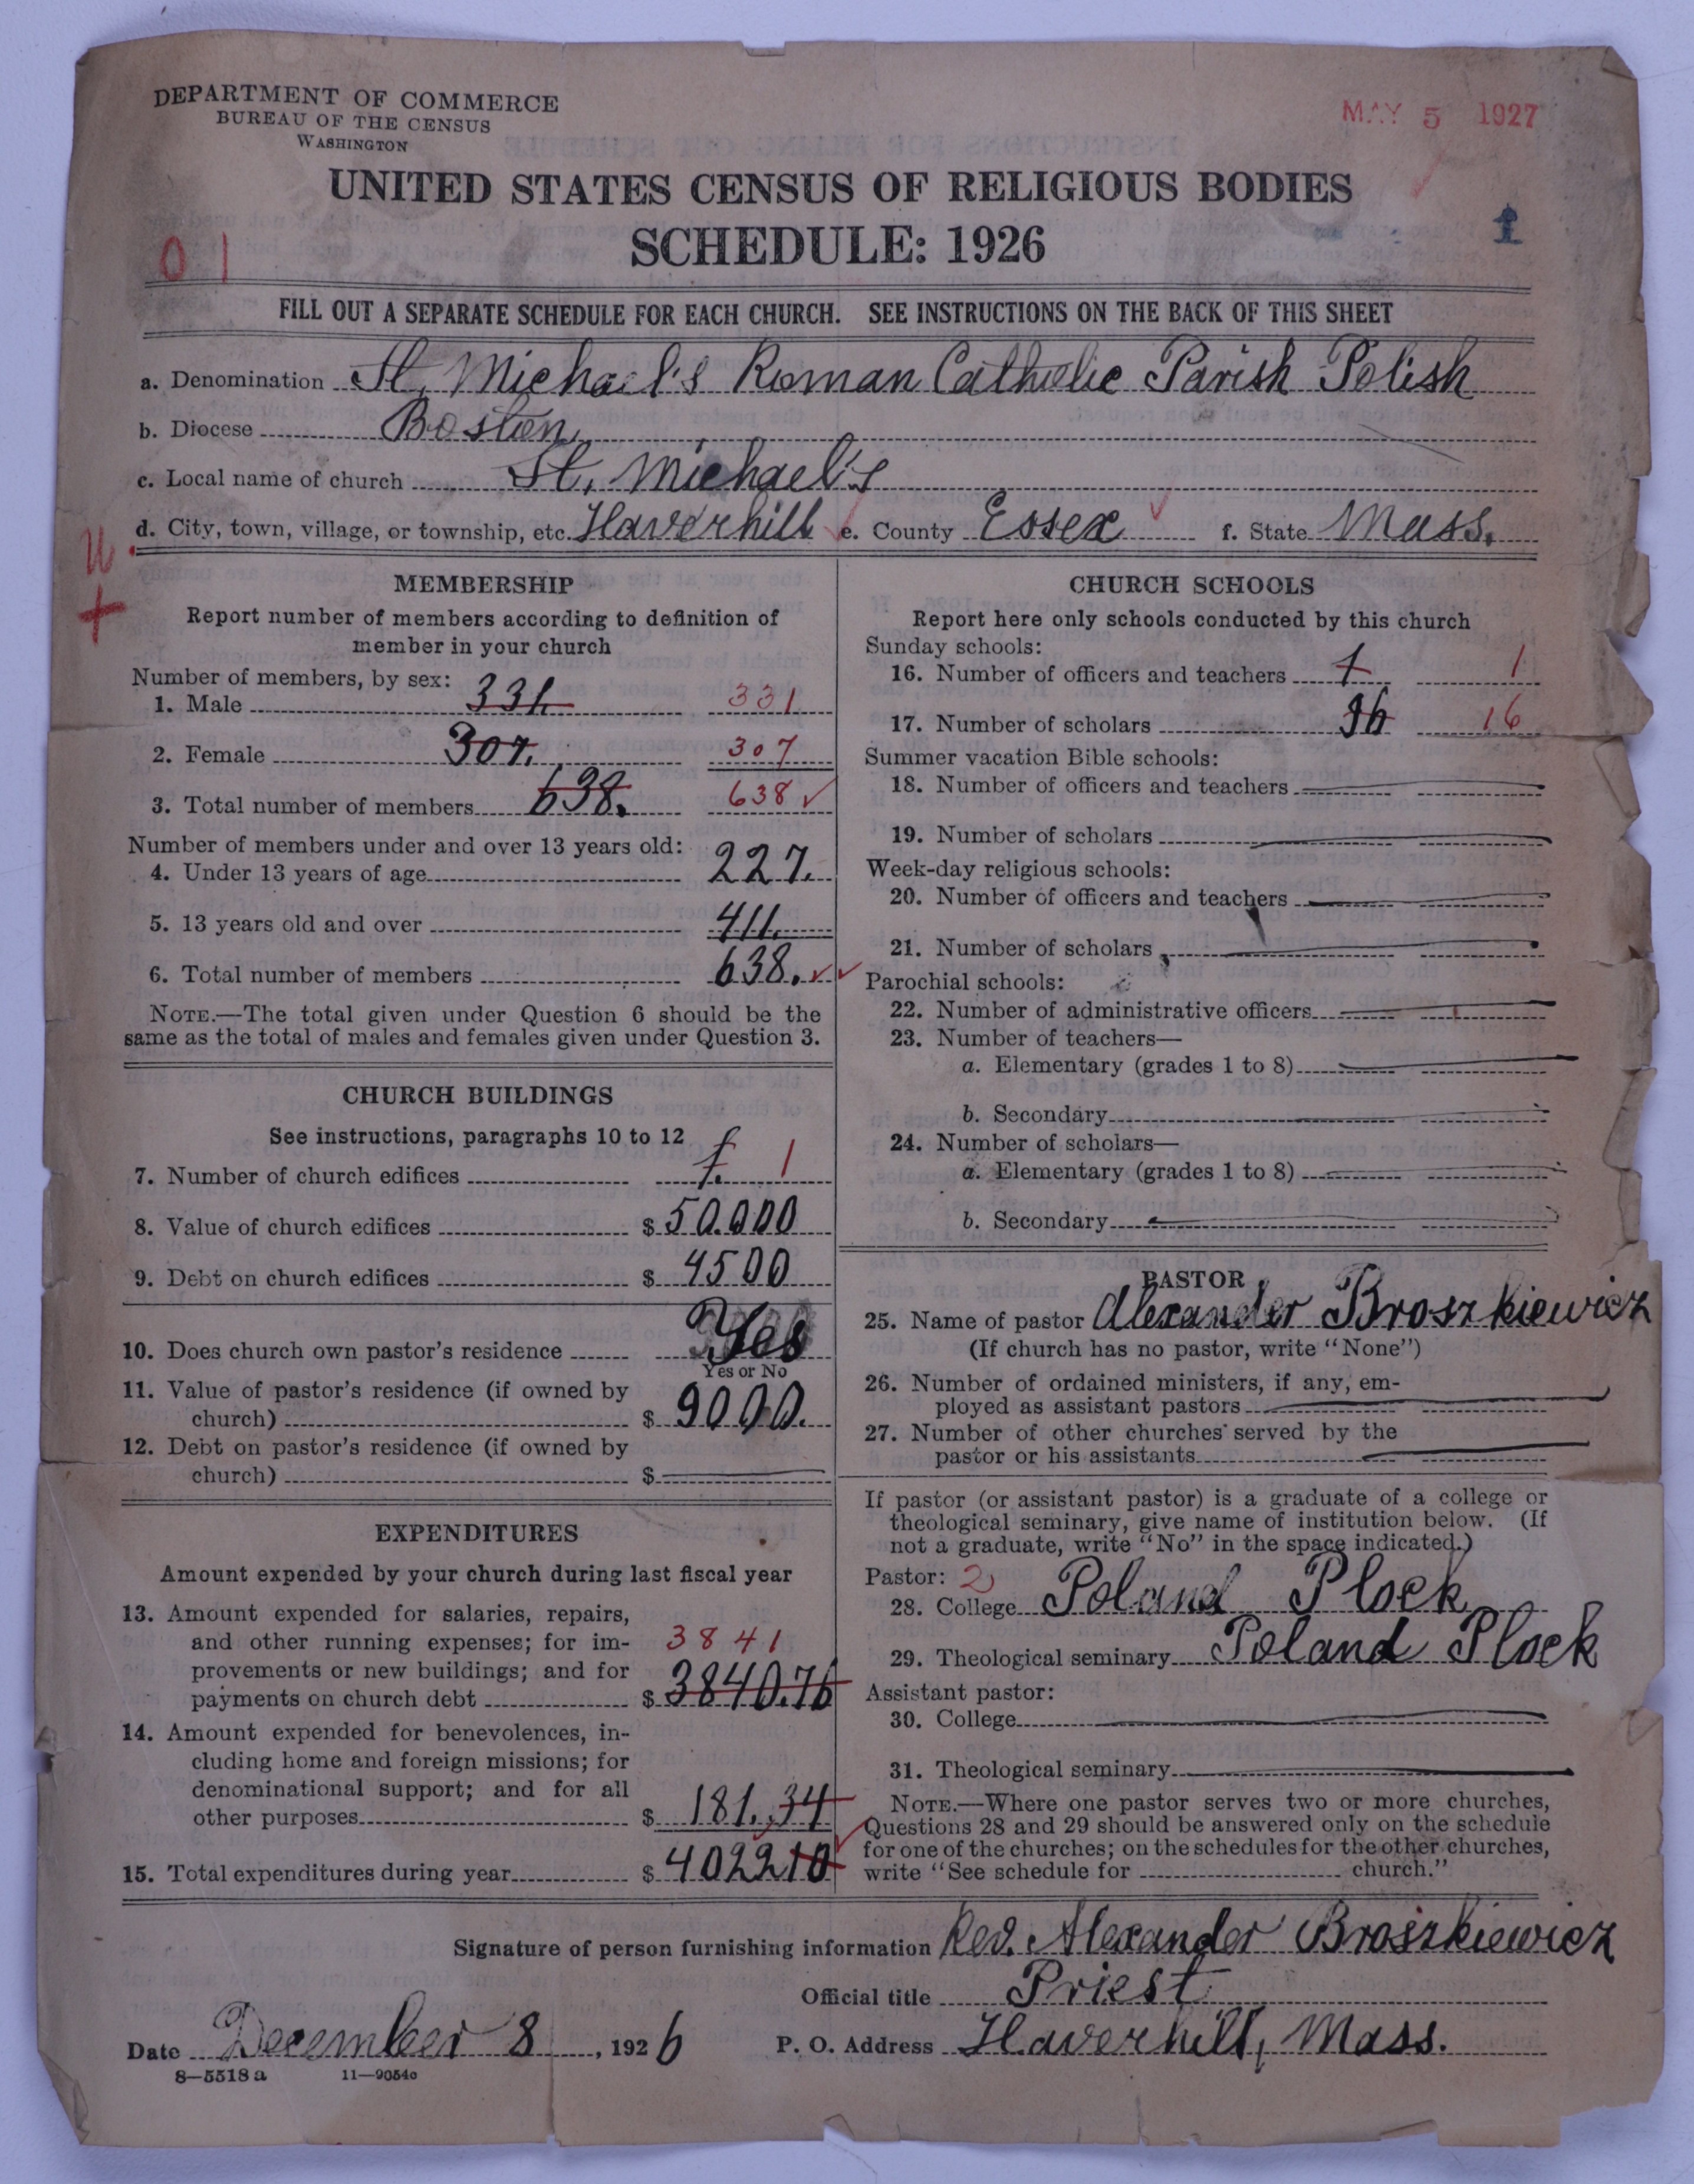 DEPARTMENT OF COMMERCE
BUREAU OF THE CENSUS
WASHINGTON
MAY 5 1927
UNITED STATES CENSUS OF RELIGIOUS BODIES
SCHEDULE: 1926
1
01
FILL OUT A SEPARATE SCHEDULE FOR EACH CHURCH. SEE INSTRUCTIONS ON THE BACK OF THIS SHEET
a. Denomination St. Michael's Roman Catholic Parish Polish
b. Diocese Boston
c. Local name of church St. Michael's
d. City, town, village, or township, etc. Haverhill e. County Essex f. State Mass.
MEMBERSHIP
Report number of members according to definition of
member in your church
Number of members, by sex:
1. Male 331. 331
2. Female 307. 307
3. Total number of members 638. 638 ✓
Number of members under and over 13 years old:
4. Under 13 years of age 227.
5. 13 years old and over 411.
6. Total number of members 638. ✓✓
NOTE.—The total given under Question 6 should be the
same as the total of males and females given under Question 3.
CHURCH BUILDINGS
See instructions, paragraphs 10 to 12
7. Number of church edifices 1. 1
8. Value of church edifices $ 50.000
9. Debt on church edifices $ 4500
10. Does church own pastor's residence Yes
Yes or No
11. Value of pastor's residence (if owned by
church) $ 9000.
12. Debt on pastor's residence (if owned by
church) $
EXPENDITURES
Amount expended by your church during last fiscal year
13. Amount expended for salaries, repairs,
and other running expenses; for im- 3841
provements or new buildings; and for
payments on church debt $ 3840.76
14. Amount expended for benevolences, in-
cluding home and foreign missions; for
denominational support; and for all
other purposes $ 181.34
15. Total expenditures during year $ 402210
CHURCH SCHOOLS
Report here only schools conducted by this church
Sunday schools:
16. Number of officers and teachers 1 1
17. Number of scholars 16 16
Summer vacation Bible schools:
18. Number of officers and teachers
19. Number of scholars
Week-day religious schools:
20. Number of officers and teachers
21. Number of scholars
Parochial schools:
22. Number of administrative officers
23. Number of teachers—
a. Elementary (grades 1 to 8)
b. Secondary
24. Number of scholars—
a. Elementary (grades 1 to 8)
b. Secondary
PASTOR
25. Name of pastor Alexander Broszkiewicz
(If church has no pastor, write "None")
26. Number of ordained ministers, if any, em-
ployed as assistant pastors
27. Number of other churches served by the
pastor or his assistants
If pastor (or assistant pastor) is a graduate of a college or
theological seminary, give name of institution below. (If
not a graduate, write "No" in the space indicated.)
Pastor: 2
28. College Poland Plock
29. Theological seminary Poland Plock
Assistant pastor:
30. College
31. Theological seminary
NOTE.—Where one pastor serves two or more churches,
Questions 28 and 29 should be answered only on the schedule
for one of the churches; on the schedules for the other churches,
write "See schedule for church."
Signature of person furnishing information Rev. Alexander Broszkiewicz
Official title Priest
Date December 8, 1926 P. O. Address Haverhill, Mass.
8—5518 a 11—9054c